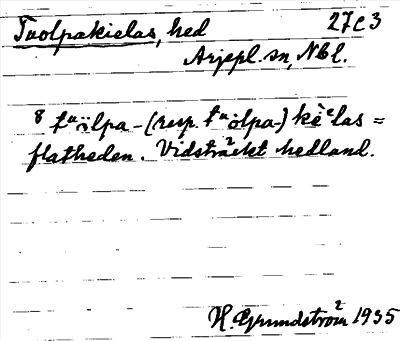 Tuolpakielas, hed 27C3
Arjepl. sn, Nbl.
8 tᵘölpa-(resp. tᵘȯlpa-) kèᵉlas =
flatheden. Vidsträckt hedland.
H. Grundström 1935